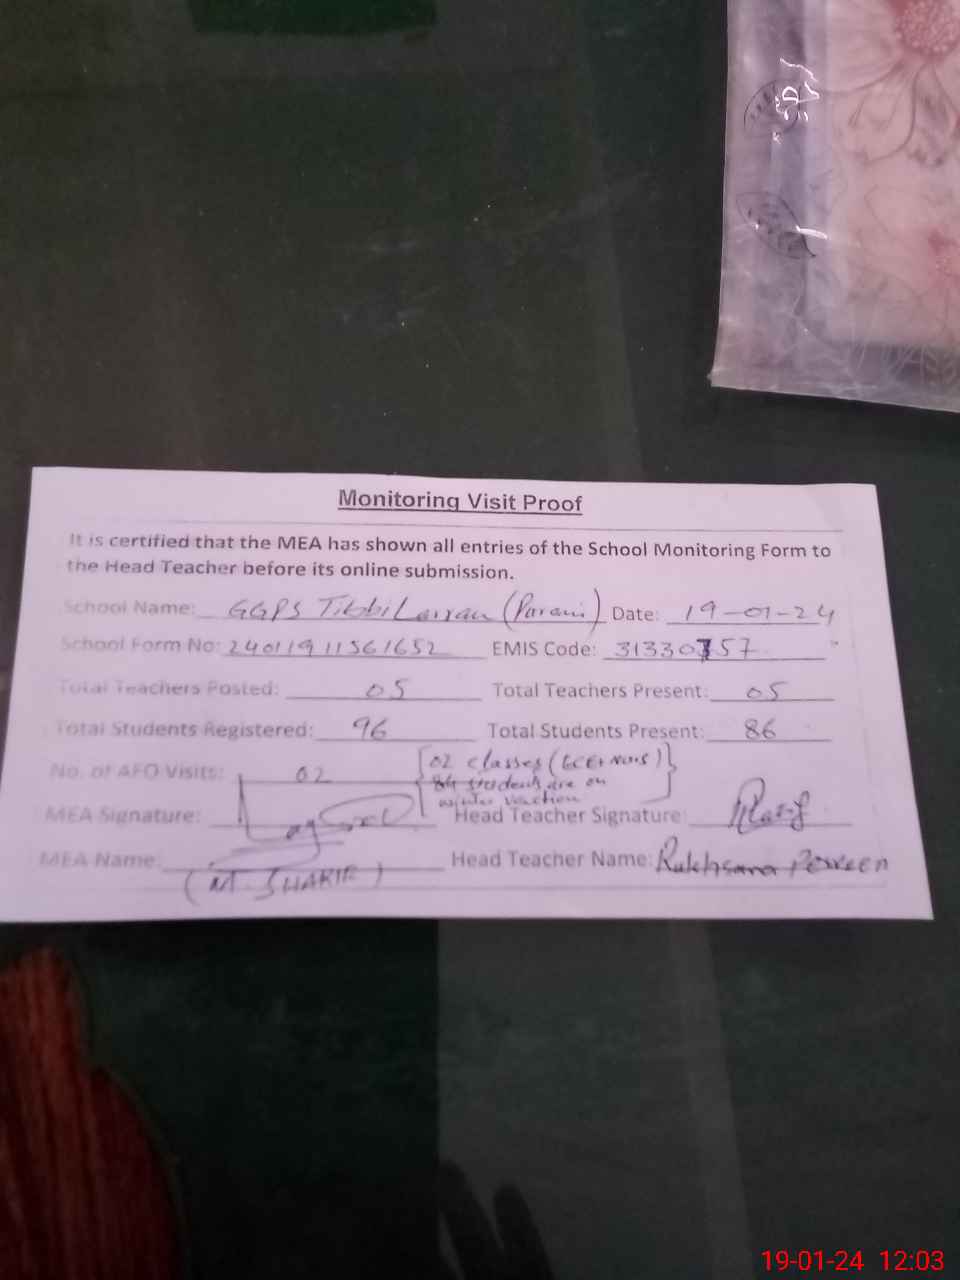 Monitoring Visit Proof
It is certified that the MEA has shown all entries of the School Monitoring Form to
the Head Teacher before its online submission.
School Name: GGPS Tibbi Larran (Parani) Date: 19-01-24
School Form No: 24011911561652 EMIS Code: 31330757
Total Teachers Posted: 05 Total Teachers Present: 05
Total Students Registered: 96 Total Students Present: 86
No. of AEO Visits: 02 [02 classes (ECE+Nurs)
84 students are on
winter vaction]
MEA Signature: Head Teacher Signature:
MEA Name: (M. SHAKIR) Head Teacher Name: Rukhsana Perveen
19-01-24 12:03